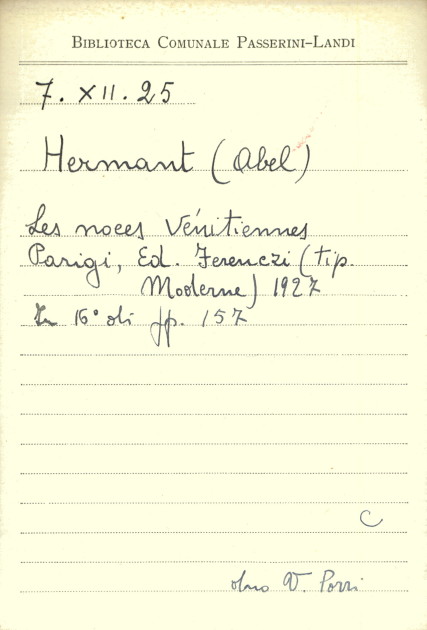 BIBLIOTECA COMUNALE PASSERINI-LANDI
7. XII. 25
Hermant (Abel)
Les noces Vénitiennes
Parigi, Ed. Ferenczi (tip.
Moderne) 1927
In 16° di pp. 157
C
dono V. Porri